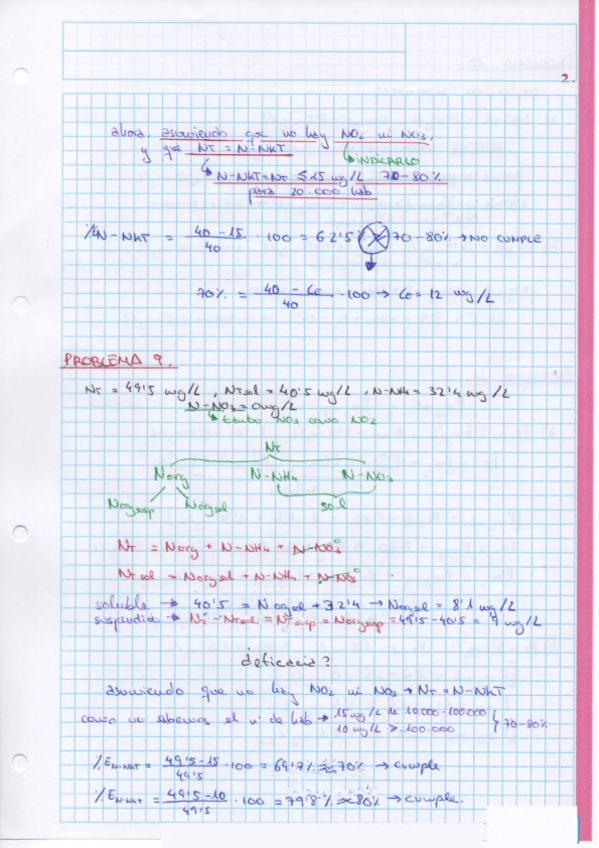 2.
ahora, asumiendo que no hay NO₂ ni NO₃,
y que NT = N-NKT ↳ INDICARLO
↳ N-NKT=NT ≤ 15 mg/L 70-80%
para 20.000 hab
%EN-NKT = (40-15)/40 · 100 = 62'5% ≈ 70-80% → NO CUMPLE
70% = (40 - Ce)/40 · 100 → Ce = 12 mg/L
PROBLEMA 9.
NT = 49'5 mg/L , NTsol = 40'5 mg/L , N-NH₄ = 32'4 mg/L
N-NO₃ = 0 mg/L
↳ tanto NO₃ como NO₂
NT
Norg N-NH₄ N-NO₃
Norgsusp Norgsol sol
NT = Norg + N-NH₄ + N-NO₃ 0
NTsol = Norgsol + N-NH₄ + N-NO₃ 0
soluble → 40'5 = Norgsol + 32'4 → Norgsol = 8'1 mg/L
suspendida → NT - NTsol = NTsusp = Norgsusp = 49'5 - 40'5 = 9 mg/L
¿eficacia?
asumiendo que no hay NO₂ ni NO₃ → NT = N-NKT
como no sabemos el nº de hab → 15 mg/L de 10.000-100.000 70-80%
10 mg/L > 100.000
%EN-NKT = (49'5-15)/49'5 · 100 = 69'7% ≈ 70% → cumple
%EN-NKT = (49'5-10)/49'5 · 100 = 79'8% ≈ 80% → cumple.